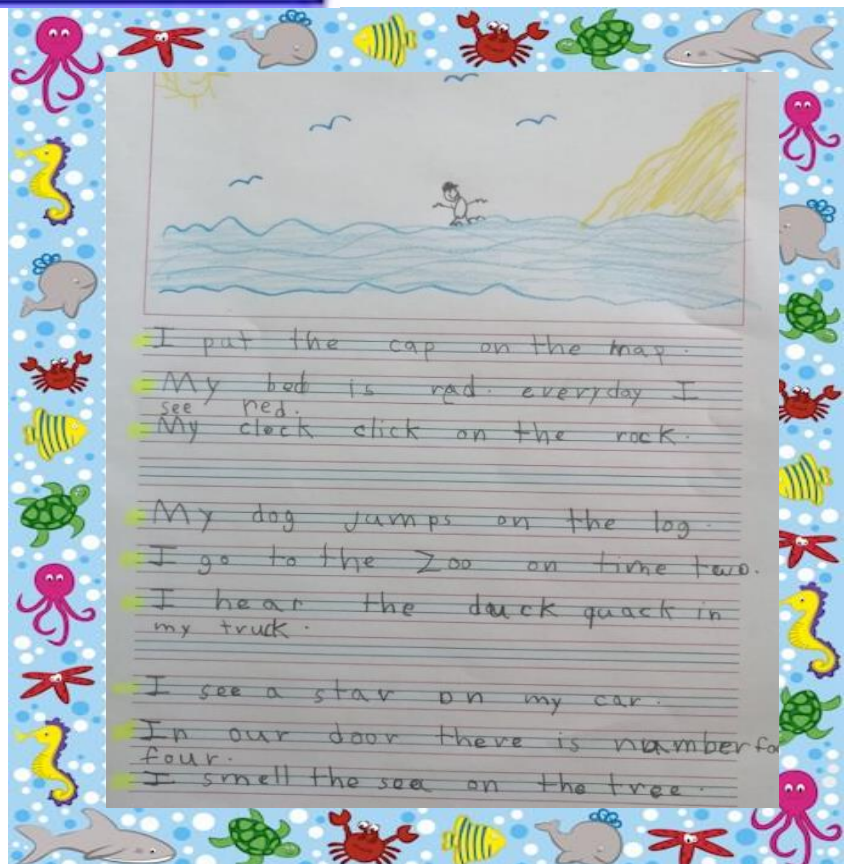 I put the cap on the map.
My bed is red. everyday I
see red.
My clock click on the rock.
My dog jumps on the log.
I go to the Zoo on time two.
I hear the duck quack in
my truck.
I see a star on my car.
In our door there is number fo
four.
I smell the sea on the tree.